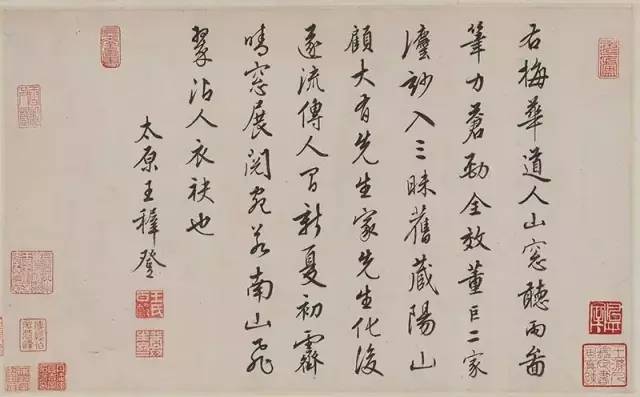 右梅華道人山窓聽雨啚
筆力蒼勁全效董巨二家
灋玅入三昧舊藏陽山
顧大有先生家先生化後
遂流傳人間新夏初霽
晴窓展閱宛若南山飛
翠沾人衣袂也
太原王穉登
王氏百穀